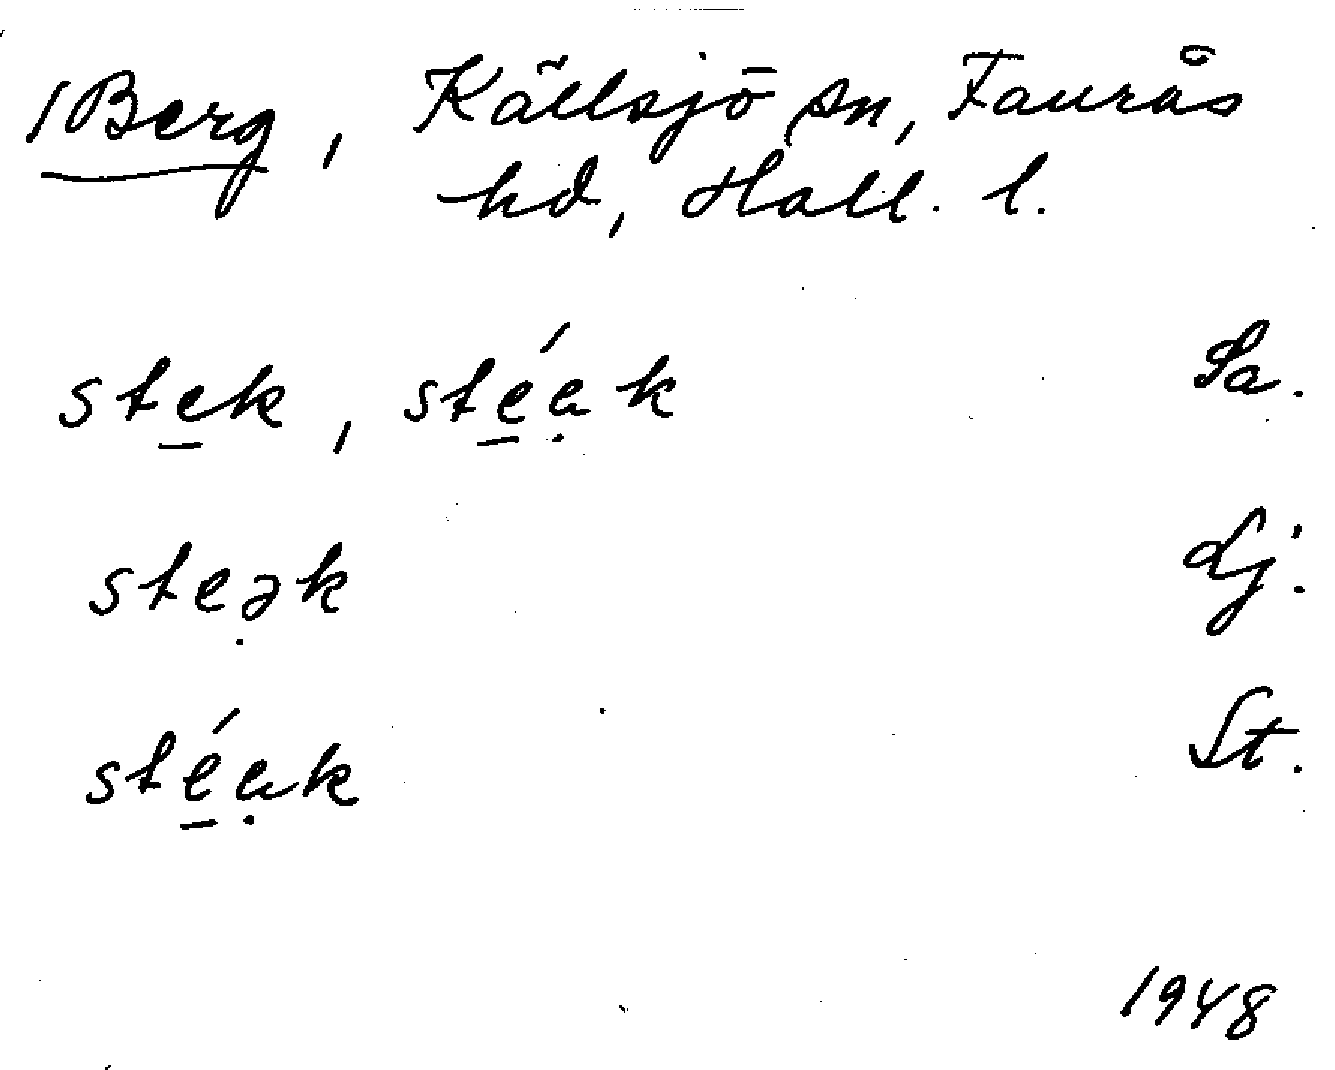 /Berg, Källsjö sn, Faurås
hd, Hall. l.
ste̲k, sté̲ạk Sa.
steə̣k Lj.
sté̲ạk St.
1948